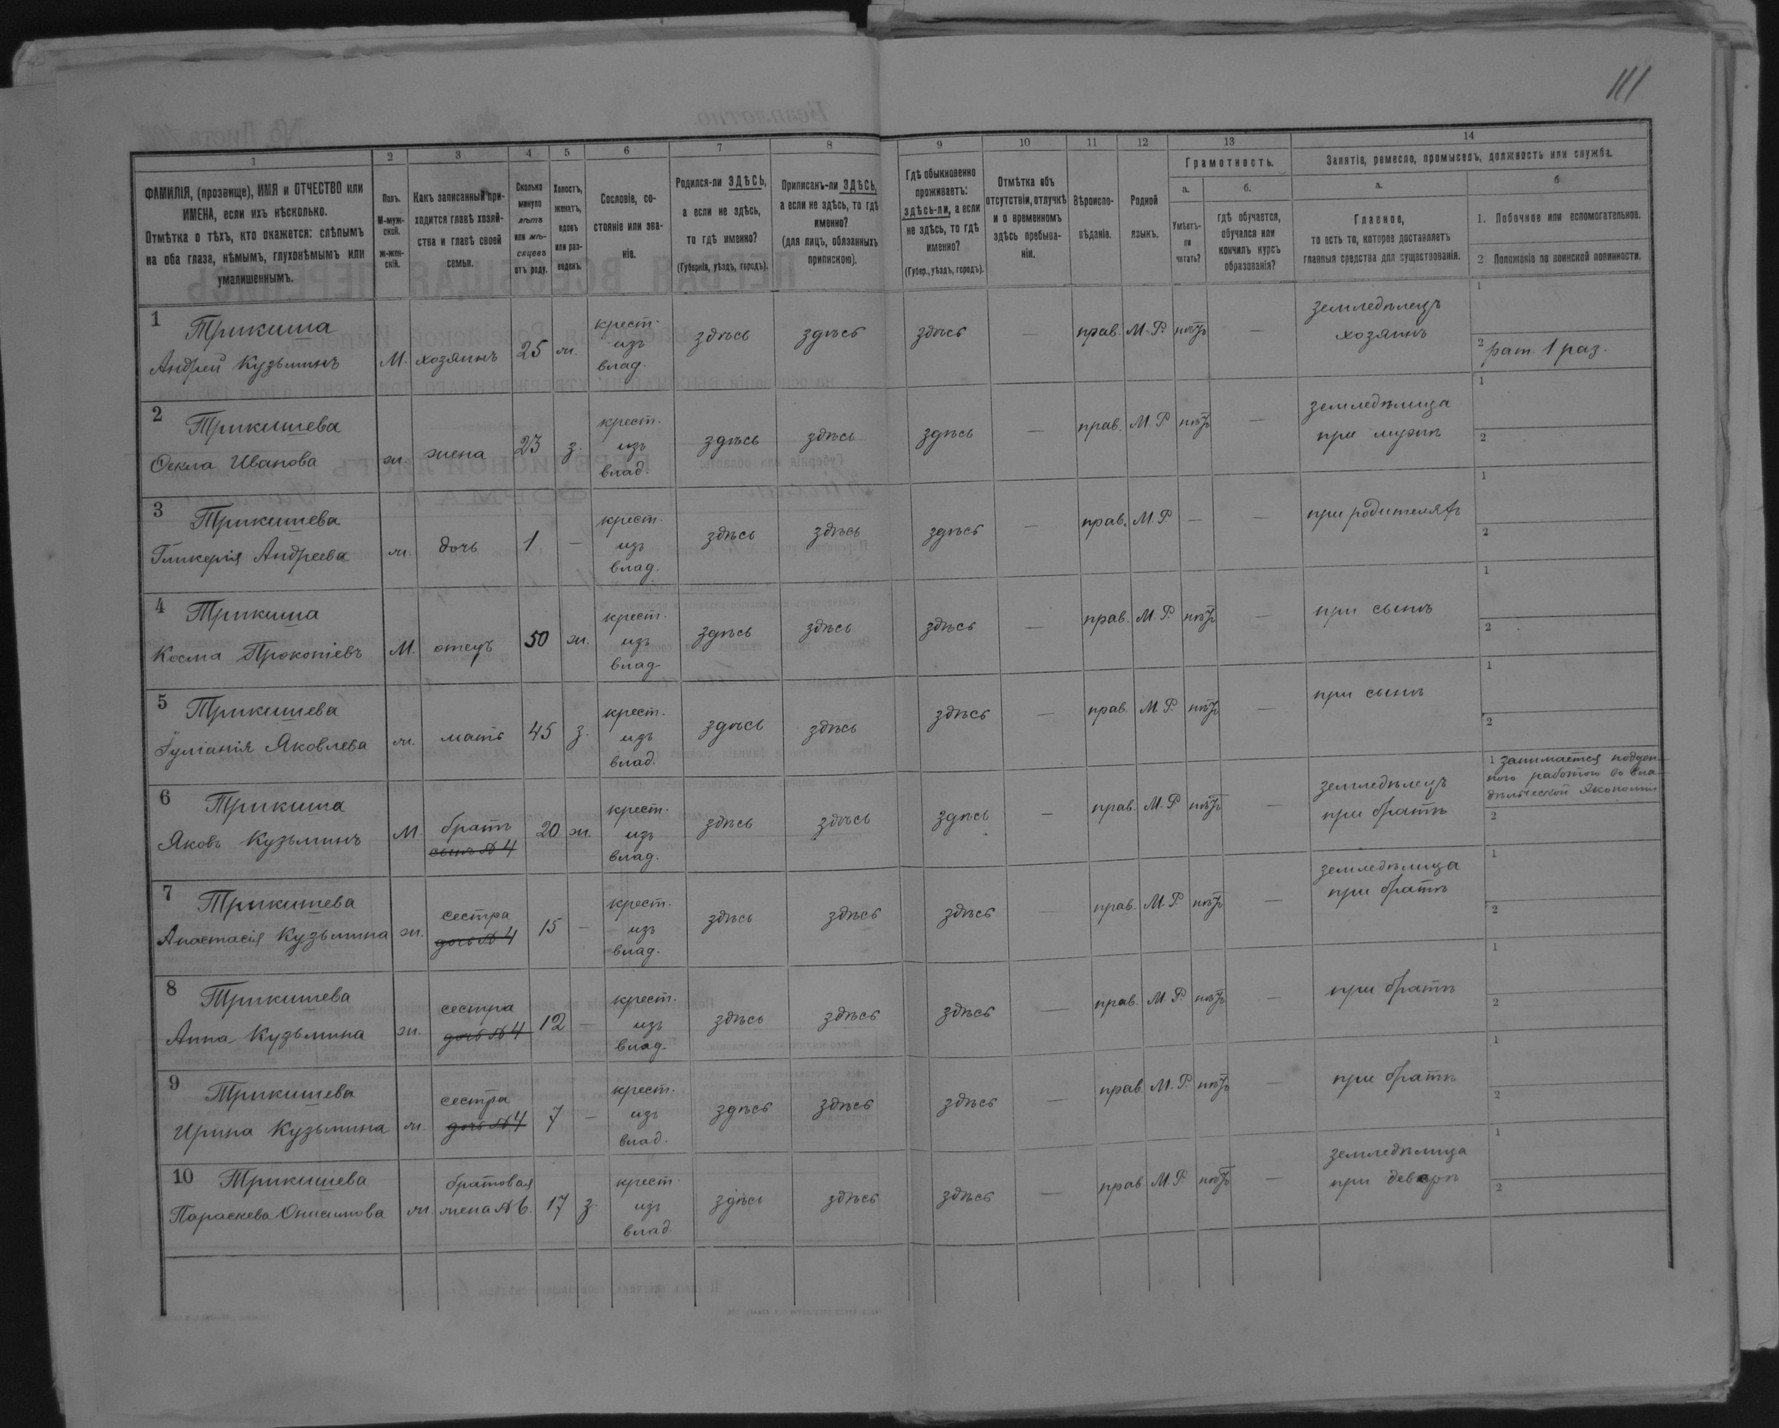 111
1
2
3
4
5
6
7
8
9
10
11
12
13
14
ФАМИЛІЯ, (прозвище), ИМЯ и ОТЧЕСТВО или
ИМЕНА, если ихъ нѣсколько.
Отмѣтка о тѣхъ, кто окажется: слѣпымъ
на оба глаза, нѣмымъ, глухонѣмымъ или
умалишеннымъ.
Полъ.
М-муж-
ской.
ж-жен-
скій.
Какъ записанный при-
ходится главѣ хозяй-
ства и главѣ своей
семьи.
Сколько
минуло
лѣтъ
или мѣ-
сяцевъ
отъ роду.
Холостъ,
женатъ,
вдовъ
или раз-
веденъ.
Сословіе, со-
стояніе или зва-
ніе.
Родился-ли ЗДѢСЬ,
а если не здѣсь,
то гдѣ именно?
(Губернія, уѣздъ, городъ).
Приписанъ-ли ЗДѢСЬ,
а если не здѣсь, то гдѣ
именно?
(для лицъ, обязанныхъ
припискою).
Гдѣ обыкновенно
проживаетъ:
здѣсь-ли, а если
не здѣсь, то гдѣ
именно?
(Губер., уѣздъ, городъ).
Отмѣтка объ
отсутствіи, отлучкѣ
и о временномъ
здѣсь пребыва-
ніи.
Вѣроиспо-
вѣданіе.
Родной
языкъ.
Грамотность.
а.
Умѣетъ-
ли
читать?
б.
гдѣ обучается,
обучался или
кончилъ курсъ
образованія?
Занятіе, ремесло, промыселъ, должность или служба.
а.
Главное,
то есть то, которое доставляетъ
главныя средства для существованія.
б
1. Побочное или вспомогательное.
2 Положеніе по воинской повинности.
1 Трикиша
Андрей Кузьминъ М. хозяинъ 25 ж. крест. изъ влад. здѣсь здѣсь здѣсь — прав. М.Р. нѣтъ — земледѣлецъ хозяинъ 1
2 рат. 1 раз.
2 Трикишева
Фекла Иванова ж. жена 23 з. крест. изъ влад. здѣсь здѣсь здѣсь — прав. М.Р. нѣтъ — земледѣлица при мужѣ 1
2
3 Трикишева
Гликерія Андреева ж. дочь 1 — крест. изъ влад. здѣсь здѣсь здѣсь — прав. М.Р. — — при родителяхъ 1
2
4 Трикиша
Косма Прокопіевъ М. отецъ 50 ж. крест. изъ влад. здѣсь здѣсь здѣсь — прав. М.Р. нѣтъ — при сынѣ 1
2
5 Трикишева
Іуліанія Яковлева ж. мать 45 з. крест. изъ влад. здѣсь здѣсь здѣсь — прав. М.Р. нѣтъ — при сынѣ 1
2
6 Трикиша
Яковъ Кузьминъ М братъ сынъ № 4 20 ж. крест. изъ влад. здѣсь здѣсь здѣсь — прав. М.Р нѣтъ — земледѣлецъ при братѣ 1 занимается поден-
ною работою въ вла-
дѣльческой экономіи
2
7 Трикишева
Анастасія Кузьмина ж. сестра дочь № 4 15 — крест. изъ влад. здѣсь здѣсь здѣсь — прав. М.Р. нѣтъ — земледѣлица при братѣ 1
2
8 Трикишева
Анна Кузьмина ж. сестра дочь № 4 12 — крест. изъ влад. здѣсь здѣсь здѣсь — прав. М.Р. нѣтъ — при братѣ 1
2
9 Трикишева
Ирина Кузьмина ж. сестра дочь № 4 7 — крест. изъ влад. здѣсь здѣсь здѣсь — прав. М.Р. нѣтъ — при братѣ 1
2
10 Трикишева
Параскева Онисимова ж. братовая жена № 6. 17 з крест. изъ влад. здѣсь здѣсь здѣсь — прав. М.Р нѣтъ — земледѣлица при деверѣ 1
2